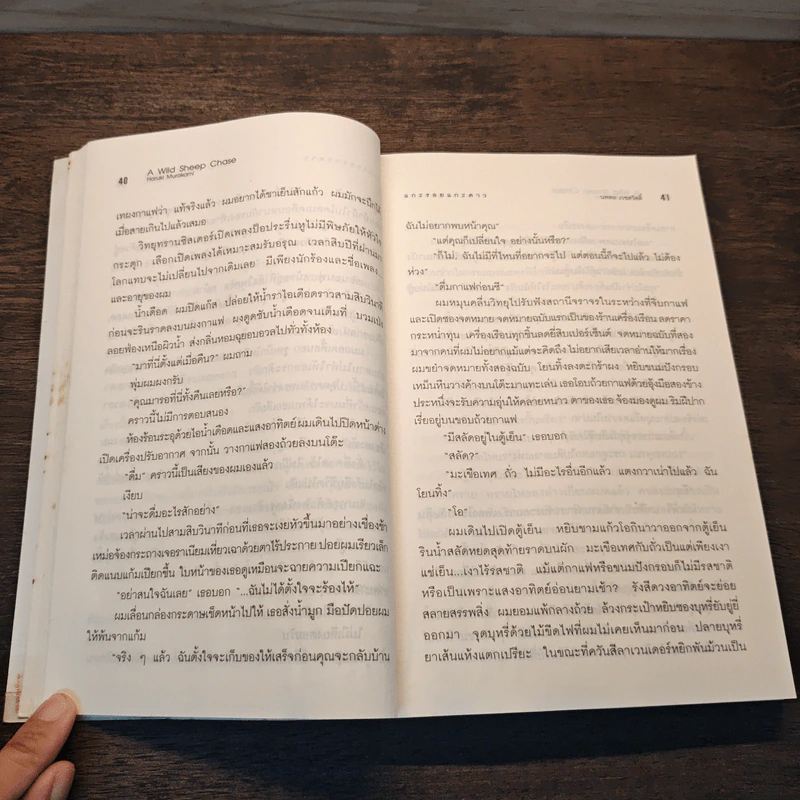 40
A Wild Sheep Chase
Haruki Murakami
เทผงกาแฟว่า แท้จริงแล้ว ผมอยากได้ชาเย็นสักแก้ว ผมมักจะนึกได้
เมื่อสายเกินไปแล้วเสมอ
วิทยุทรานซิสเตอร์เปิดเพลงป๊อประรื่นหูไม่มีพิษภัยให้หัวใจ
กระตุก เลือกเปิดเพลงได้เหมาะสมรับอรุณ เวลาสิบปีที่ผ่านมา
โลกแทบจะไม่เปลี่ยนไปจากเดิมเลย มีเพียงนักร้องและชื่อเพลง...
และอายุของผม
น้ำเดือด ผมปิดแก๊ส ปล่อยให้น้ำราไอเดือดราวสามสิบวินาที
ก่อนจะรินราดลงบนผงกาแฟ ผงดูดซับน้ำเดือดจนเต็มที่ บวมเป่ง
ลอยฟ่องเหนือผิวน้ำ ส่งกลิ่นหอมฉุยอบอวลไปทั่วทั้งห้อง
"มาที่นี่ตั้งแต่เมื่อคืน?" ผมถาม
พุ่มผมผงกรับ
"คุณมารอที่นี่ทั้งคืนเลยหรือ?"
คราวนี้ไม่มีการตอบสนอง
ห้องร้อนระอุด้วยไอน้ำเดือดและแสงอาทิตย์ ผมเดินไปปิดหน้าต่าง
เปิดเครื่องปรับอากาศ จากนั้น วางกาแฟสองถ้วยลงบนโต๊ะ
"ดื่ม" คราวนี้เป็นเสียงของผมเองแล้ว
เงียบ
"น่าจะดื่มอะไรสักอย่าง"
เวลาผ่านไปสามสิบวินาทีก่อนที่เธอจะเงยหัวขึ้นมาอย่างเชื่องช้า
เหม่อจ้องกระถางเจอราเนียมเหี่ยวเฉาด้วยตาไร้ประกาย ปอยผมเรียวเล็ก
ติดแนบแก้มเปียกชื้น ใบหน้าของเธอดูเหมือนจะฉายความเปียกแฉะ
"อย่าสนใจฉันเลย" เธอบอก "...ฉันไม่ได้ตั้งใจจะร้องไห้"
ผมเลื่อนกล่องกระดาษเช็ดหน้าไปให้ เธอสั่งน้ำมูก มือปัดปอยผม
ให้พ้นจากแก้ม
"จริง ๆ แล้ว ฉันตั้งใจจะเก็บของให้เสร็จก่อนคุณจะกลับบ้าน
แกะรอยแกะดาว
นพดล เวชสวัสดิ์
41
ฉันไม่อยากพบหน้าคุณ"
"แต่คุณก็เปลี่ยนใจ อย่างนั้นหรือ?"
"ก็ไม่, ฉันไม่มีที่ไหนที่อยากจะไป แต่ตอนนี้ก็จะไปแล้ว ไม่ต้อง
ห่วง"
"ดื่มกาแฟก่อนซี"
ผมหมุนคลื่นวิทยุไปรับฟังสถานีจราจรในระหว่างที่จิบกาแฟ
และเปิดซองจดหมาย จดหมายฉบับแรกเป็นของร้านเครื่องเรือน ลดราคา
กระหน่ำทุ่น เครื่องเรือนทุกชิ้นลดยี่สิบเปอร์เซ็นต์ จดหมายฉบับที่สอง
มาจากคนที่ผมไม่อยากแม้แต่จะคิดถึง ไม่อยากเสียเวลาอ่านให้มากเรื่อง
ผมขยำจดหมายทั้งสองฉบับ โยนทิ้งลงตะกร้าผง หยิบขนมปังกรอบ
เหม็นหืนวางค้างบนโต๊ะมาแทะเล่น เธอโอบถ้วยกาแฟด้วยอุ้งมือสองข้าง
ประหนึ่งจะรับความอุ่นให้คลายหนาว ตาของเธอ จ้องมองดูผม ริมฝีปาก
เรี่ยอยู่บนขอบถ้วยกาแฟ
"มีสลัดอยู่ในตู้เย็น" เธอบอก
"สลัด?"
"มะเขือเทศ ถั่ว ไม่มีอะไรอื่นอีกแล้ว แตงกวาเน่าไปแล้ว ฉัน
โยนทิ้ง"
"โอ"
ผมเดินไปเปิดตู้เย็น หยิบชามแก้วโอกินาวาออกจากตู้เย็น
รินน้ำสลัดหยดสุดท้ายราดบนผัก มะเขือเทศกับถั่วเป็นแต่เพียงเงา
แช่เย็น...เงาไร้รสชาติ แม้แต่กาแฟหรือขนมปังกรอบก็ไม่มีรสชาติ
หรือเป็นเพราะแสงอาทิตย์อ่อนยามเช้า? รังสีดวงอาทิตย์จะย่อย
สลายสรรพสิ่ง ผมยอมแพ้กลางถ้วย ล้วงกระเป๋าหยิบซองบุหรี่ยับยู่ยี่
ออกมา จุดบุหรี่ด้วยไม้ขีดไฟที่ผมไม่เคยเห็นมาก่อน ปลายบุหรี่
ยาเส้นแห้งแตกเปรียะ ในขณะที่ควันสีลาเวนเดอร์หยิกพันม้วนเป็น